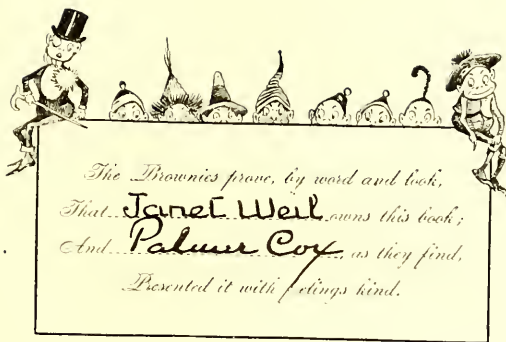 The Brownies prove, by word and look,
That Janet Weil owns this book;
And Palmer Cox, as they find,
Presented it with feelings kind.